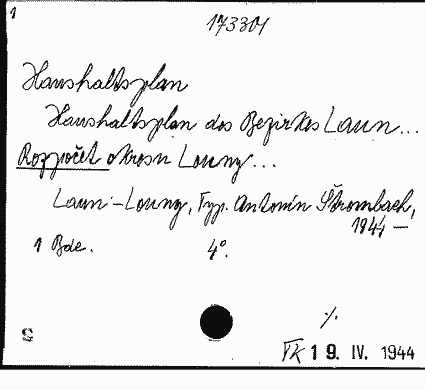 1
173301
Haushaltsplan
Haushaltsplan des Bezirkes Laun...
Rozpočet okresu Louny...
Laun-Louny, Typ. Antonín Štrombach,
1944 —
1 Bde. 4°.
%.
19. IV. 1944